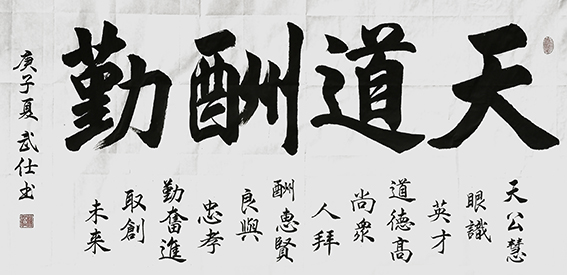 天道酬勤
天公慧
眼識
英才
道德高
尚眾
人拜
酬惠賢
良與
忠孝
勤奮進
取創
未來
庚子夏武仕书